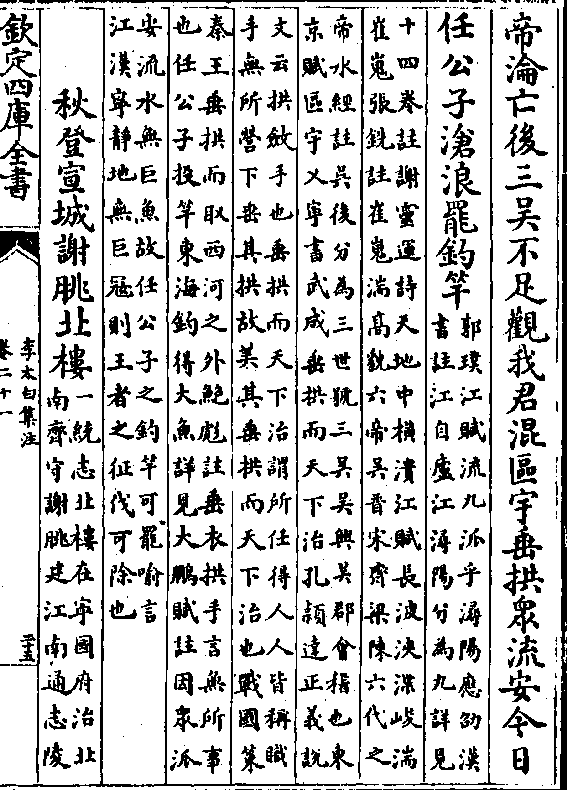 帝淪亡後三吳不足觀我君混區宇垂拱衆流安今日
任公子滄浪罷釣竿
郭璞江賦流九派乎潯陽應劭漢
書註江自廬江潯陽分為九詳見
十四卷註謝靈運詩天地中橫潰江賦長波浹渫峻湍
崔嵬張銑註崔嵬湍高貌六帝吳晉宋齊梁陳六代之
帝水經註吳後分為三世號三吳吳興吳郡會稽也東
京賦區宇乂寧書武成垂拱而天下治孔穎達正義說
文云拱斂手也垂拱而天下治謂所任得人人皆稱職
手無所營下垂其拱故美其垂拱而天下治也戰國策
秦王垂拱而取西河之外鮑彪註垂衣拱手言無所事
也任公子投竿東海釣得大魚詳見大鵬賦註因衆派
安流水無巨魚故任公子之釣竿可罷喻言
江漢寧靜地無巨寇則王者之征伐可除也
秋登宣城謝朓北樓
一統志北樓在寧國府治北
南齊守謝朓建江南通志陵
欽定四庫全書
李太白集注
卷二十一
二十五